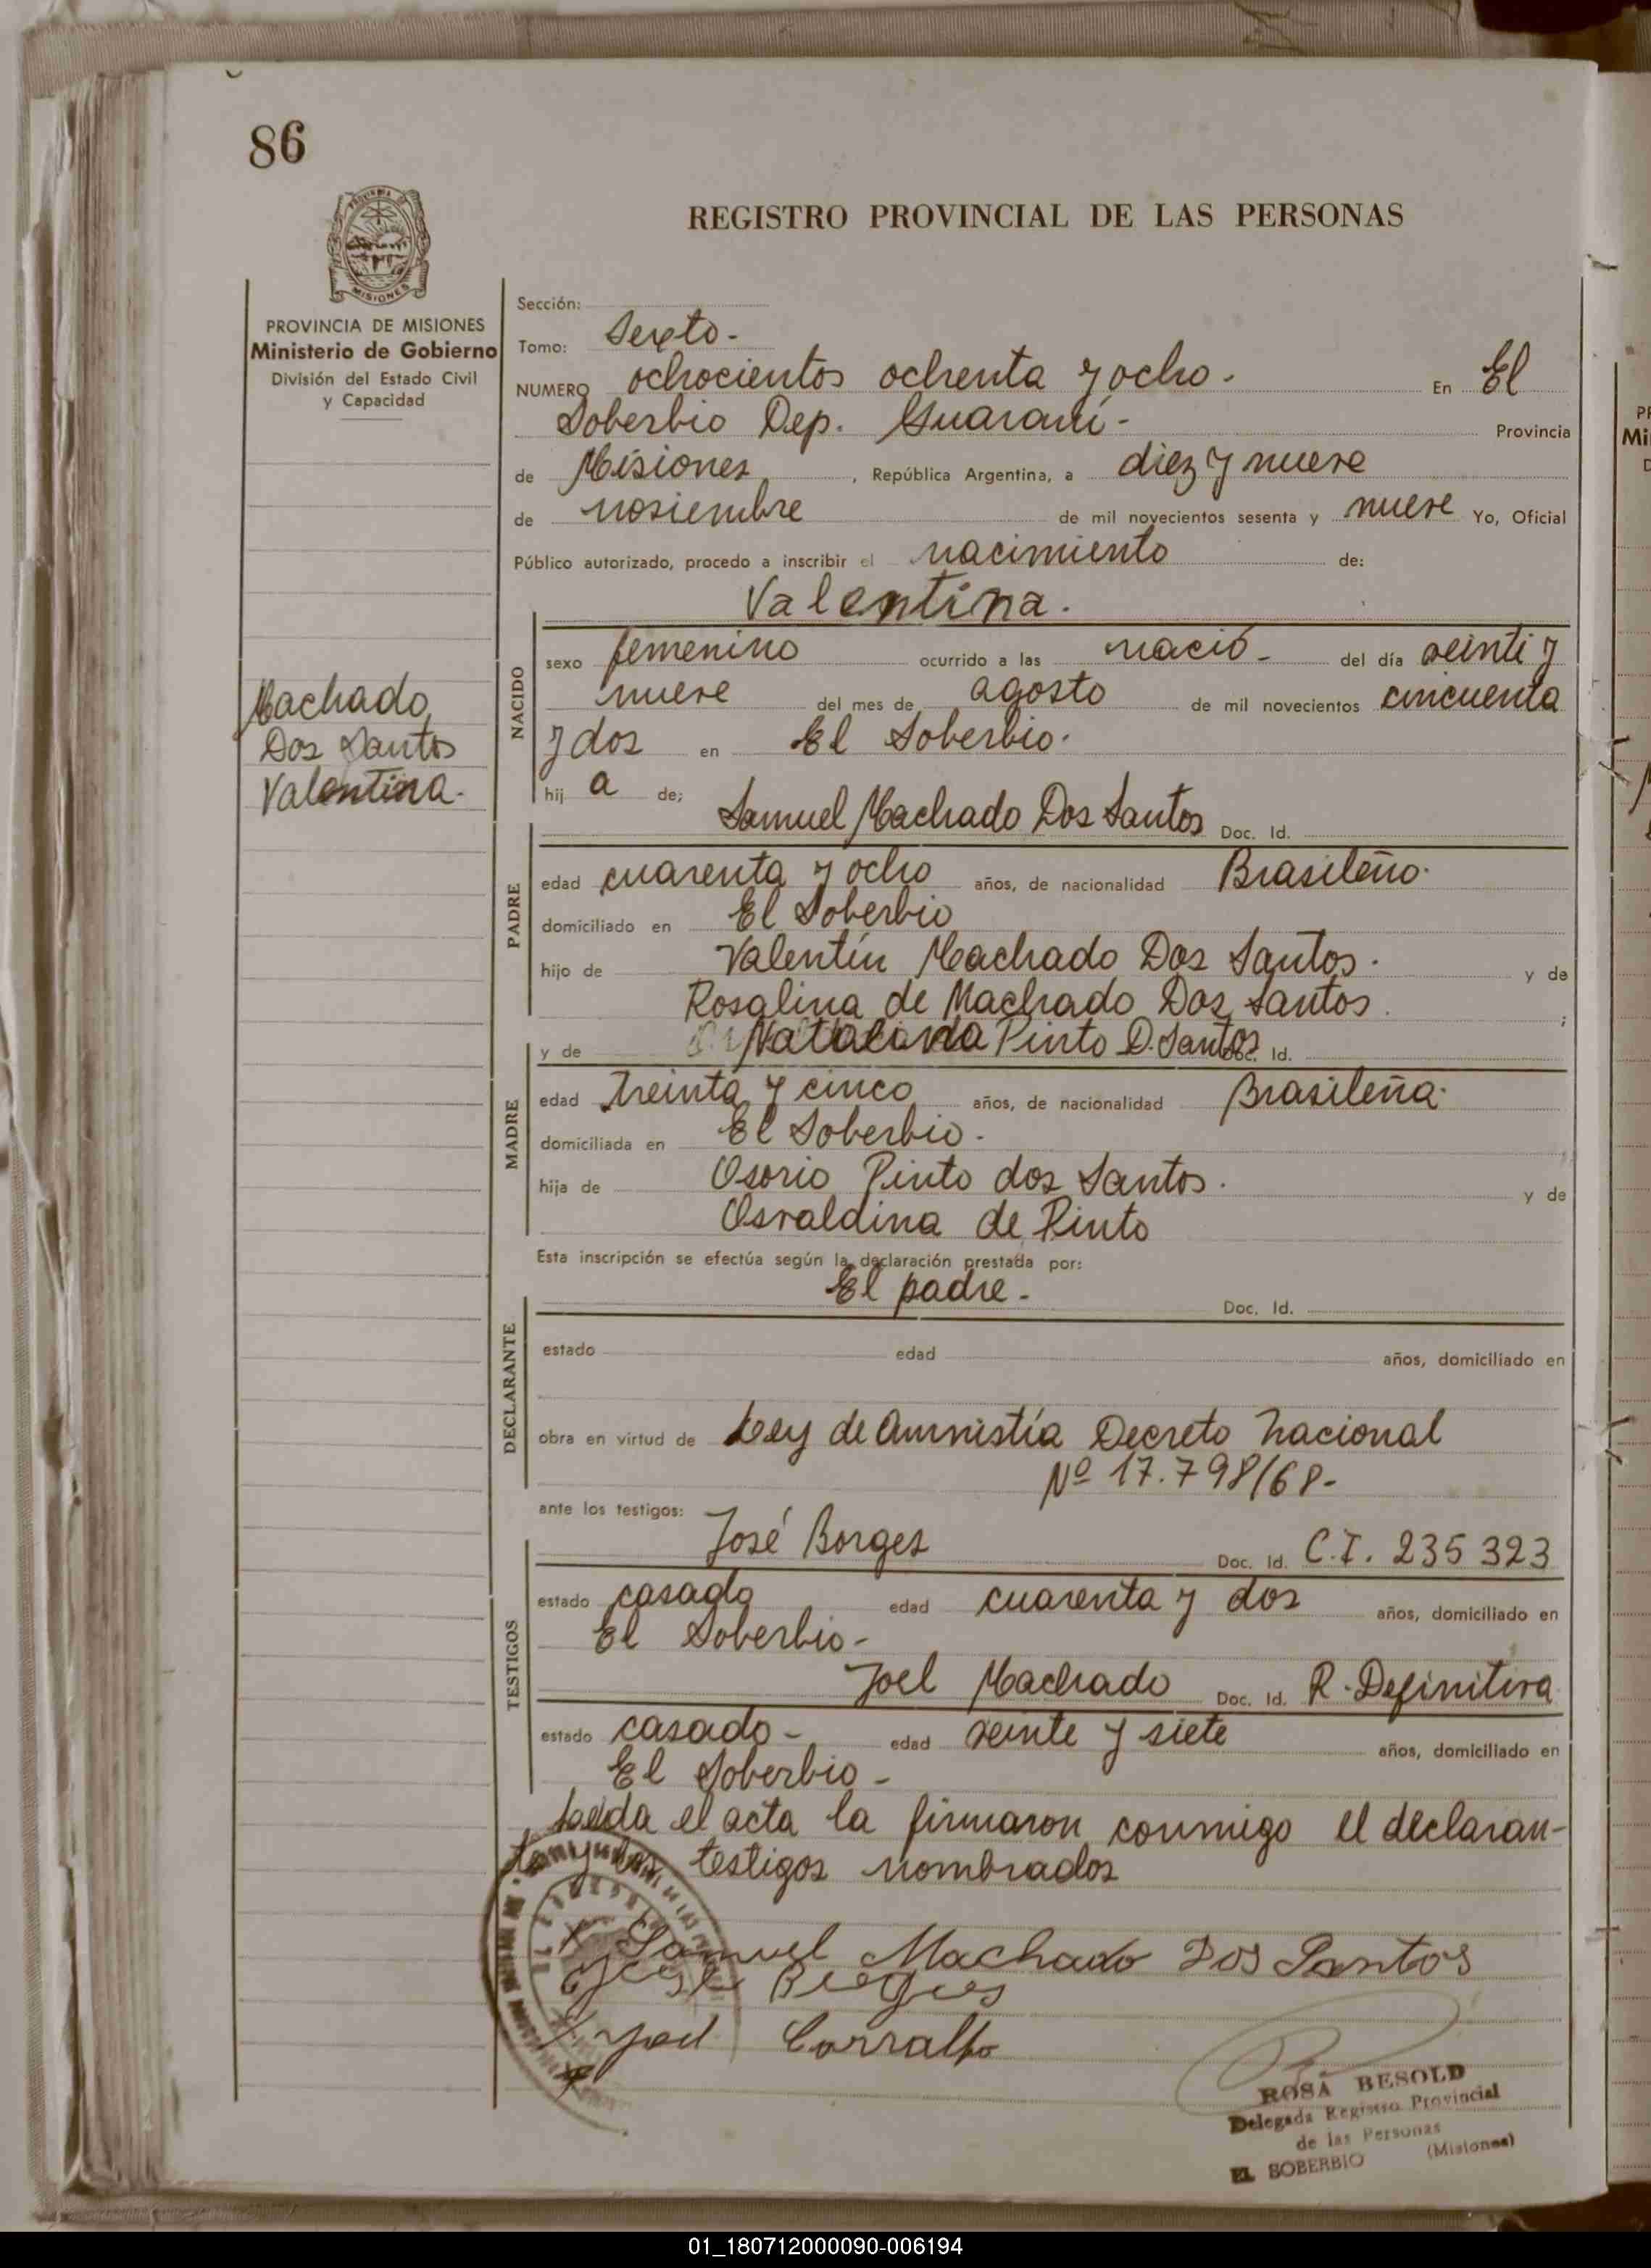 86
REGISTRO PROVINCIAL DE LAS PERSONAS
MISIONES
PROVINCIA DE MISIONES
Ministerio de Gobierno
División del Estado Civil
y Capacidad
Machado
Dos Santos
Valentina.
Sección:
Tomo: Sexto-
NUMERO ochocientos ochenta y ocho- En El
Soberbio Dep. Guaraní- Provincia
de Misiones, República Argentina, a diez y nueve
de noviembre de mil novecientos sesenta y nueve Yo, Oficial
Público autorizado, procedo a inscribir el nacimiento de:
Valentina.
NACIDO
sexo femenino ocurrido a las nació- del día veinti y
nueve del mes de agosto de mil novecientos cincuenta
y dos en El Soberbio.
hij a de;
Samuel Machado Dos Santos Doc. Id.
PADRE
edad cuarenta y ocho años, de nacionalidad Brasileño.
domiciliado en El Soberbio
hijo de Valentín Machado Dos Santos. y de
Rosalina de Machado Dos Santos. ;
y de Pinto D. Santos Doc. Id.
MADRE
edad treinta y cinco años, de nacionalidad Brasileña.
domiciliada en El Soberbio.-
hija de Osorio Pinto dos Santos. y de
Osvaldina de Pinto
Esta inscripción se efectúa según la declaración prestada por:
El padre.- Doc. Id.
DECLARANTE
estado edad años, domiciliado en
obra en virtud de Ley de Amnistía Decreto Nacional
Nº 17.798/68-
ante los testigos:
José Borges Doc. Id. C.I. 235323
TESTIGOS
estado casado edad cuarenta y dos años, domiciliado en
El Soberbio-
Joel Machado Doc. Id. R. Definitiva
estado casado- edad veinte y siete años, domiciliado en
El Soberbio-
Leída el acta la firmaron conmigo el declaran-
te y los testigos nombrados
Samuel Machado Dos Santos
ROSA BESOLD
Delegada Registro Provincial
de las Personas
EL SOBERBIO (Misiones)
01_180712000090-006194